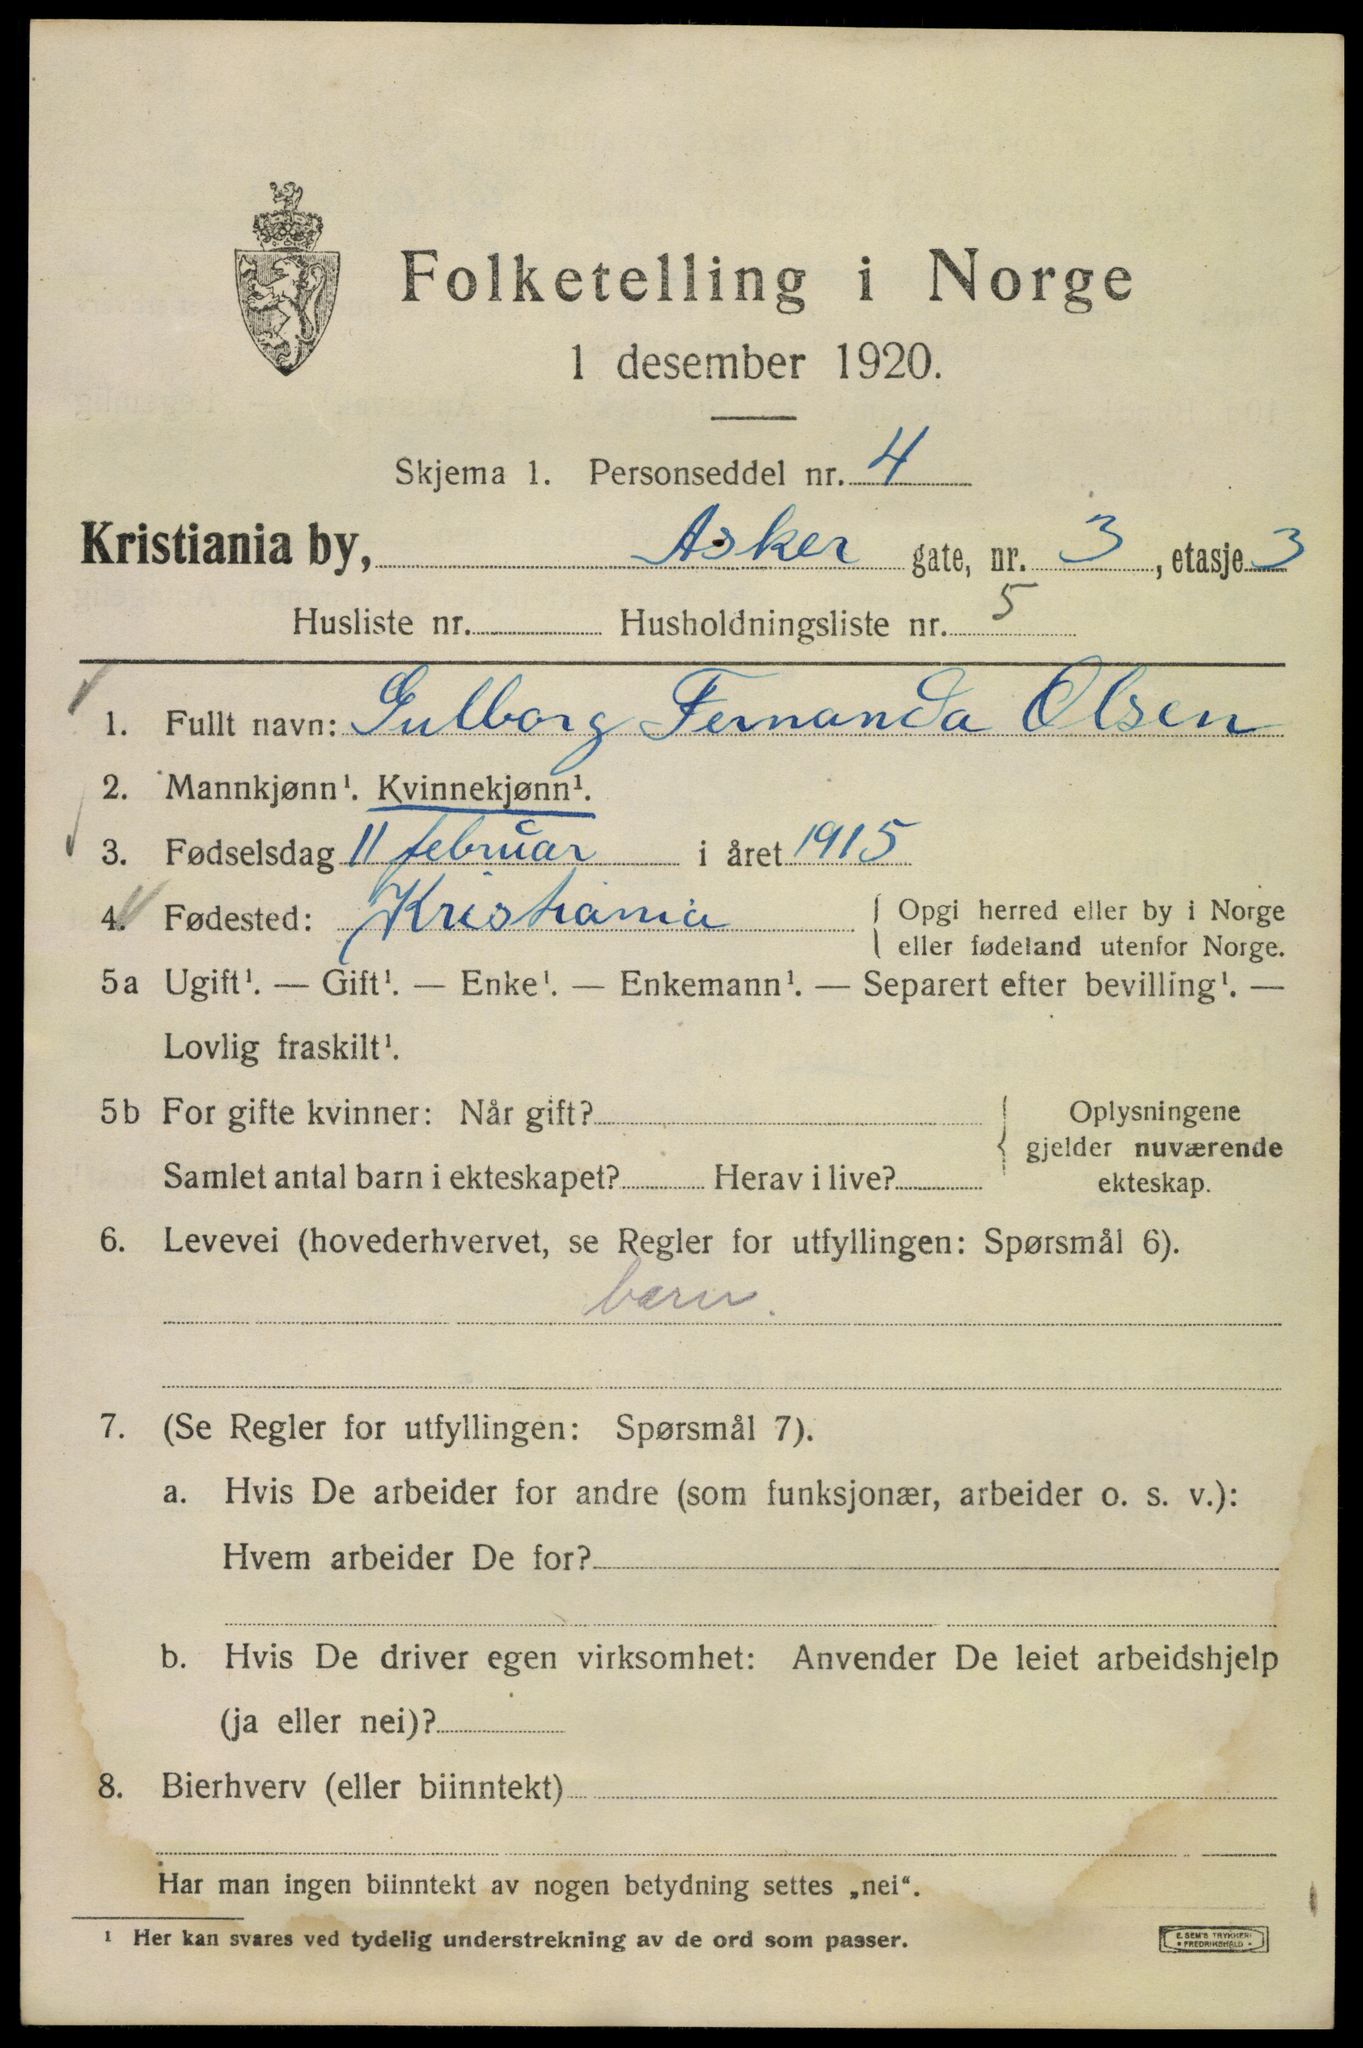 Folketelling i Norge
1 desember 1920.
Skjema 1. Personseddel nr. 4
Kristiania by, Asker gate, nr. 3, etasje 3
Husliste nr. Husholdningsliste nr. 5
1. Fullt navn: Gulborg Fernanda Olsen
2. Mannkjønn¹. Kvinnekjønn¹.
3. Fødselsdag 11 februar i året 1915
4. Fødested: Kristiania { Opgi herred eller by i Norge
eller fødeland utenfor Norge.
5a Ugift¹. — Gift¹. — Enke¹. — Enkemann¹. — Separert efter bevilling¹. —
Lovlig fraskilt¹.
5b For gifte kvinner: Når gift? { Oplysningene
gjelder nuværende
Samlet antal barn i ekteskapet? Herav i live? ekteskap.
6. Levevei (hovederhvervet, se Regler for utfyllingen: Spørsmål 6).
barn.
7. (Se Regler for utfyllingen: Spørsmål 7).
a. Hvis De arbeider for andre (som funksjonær, arbeider o. s. v.):
Hvem arbeider De for?
b. Hvis De driver egen virksomhet: Anvender De leiet arbeidshjelp
(ja eller nei)?
8. Bierhverv (eller biinntekt)
Har man ingen biinntekt av nogen betydning settes „nei“.
¹ Her kan svares ved tydelig understrekning av de ord som passer.
E. SEM'S TRYKKERI
• FREDRIKSHALD •